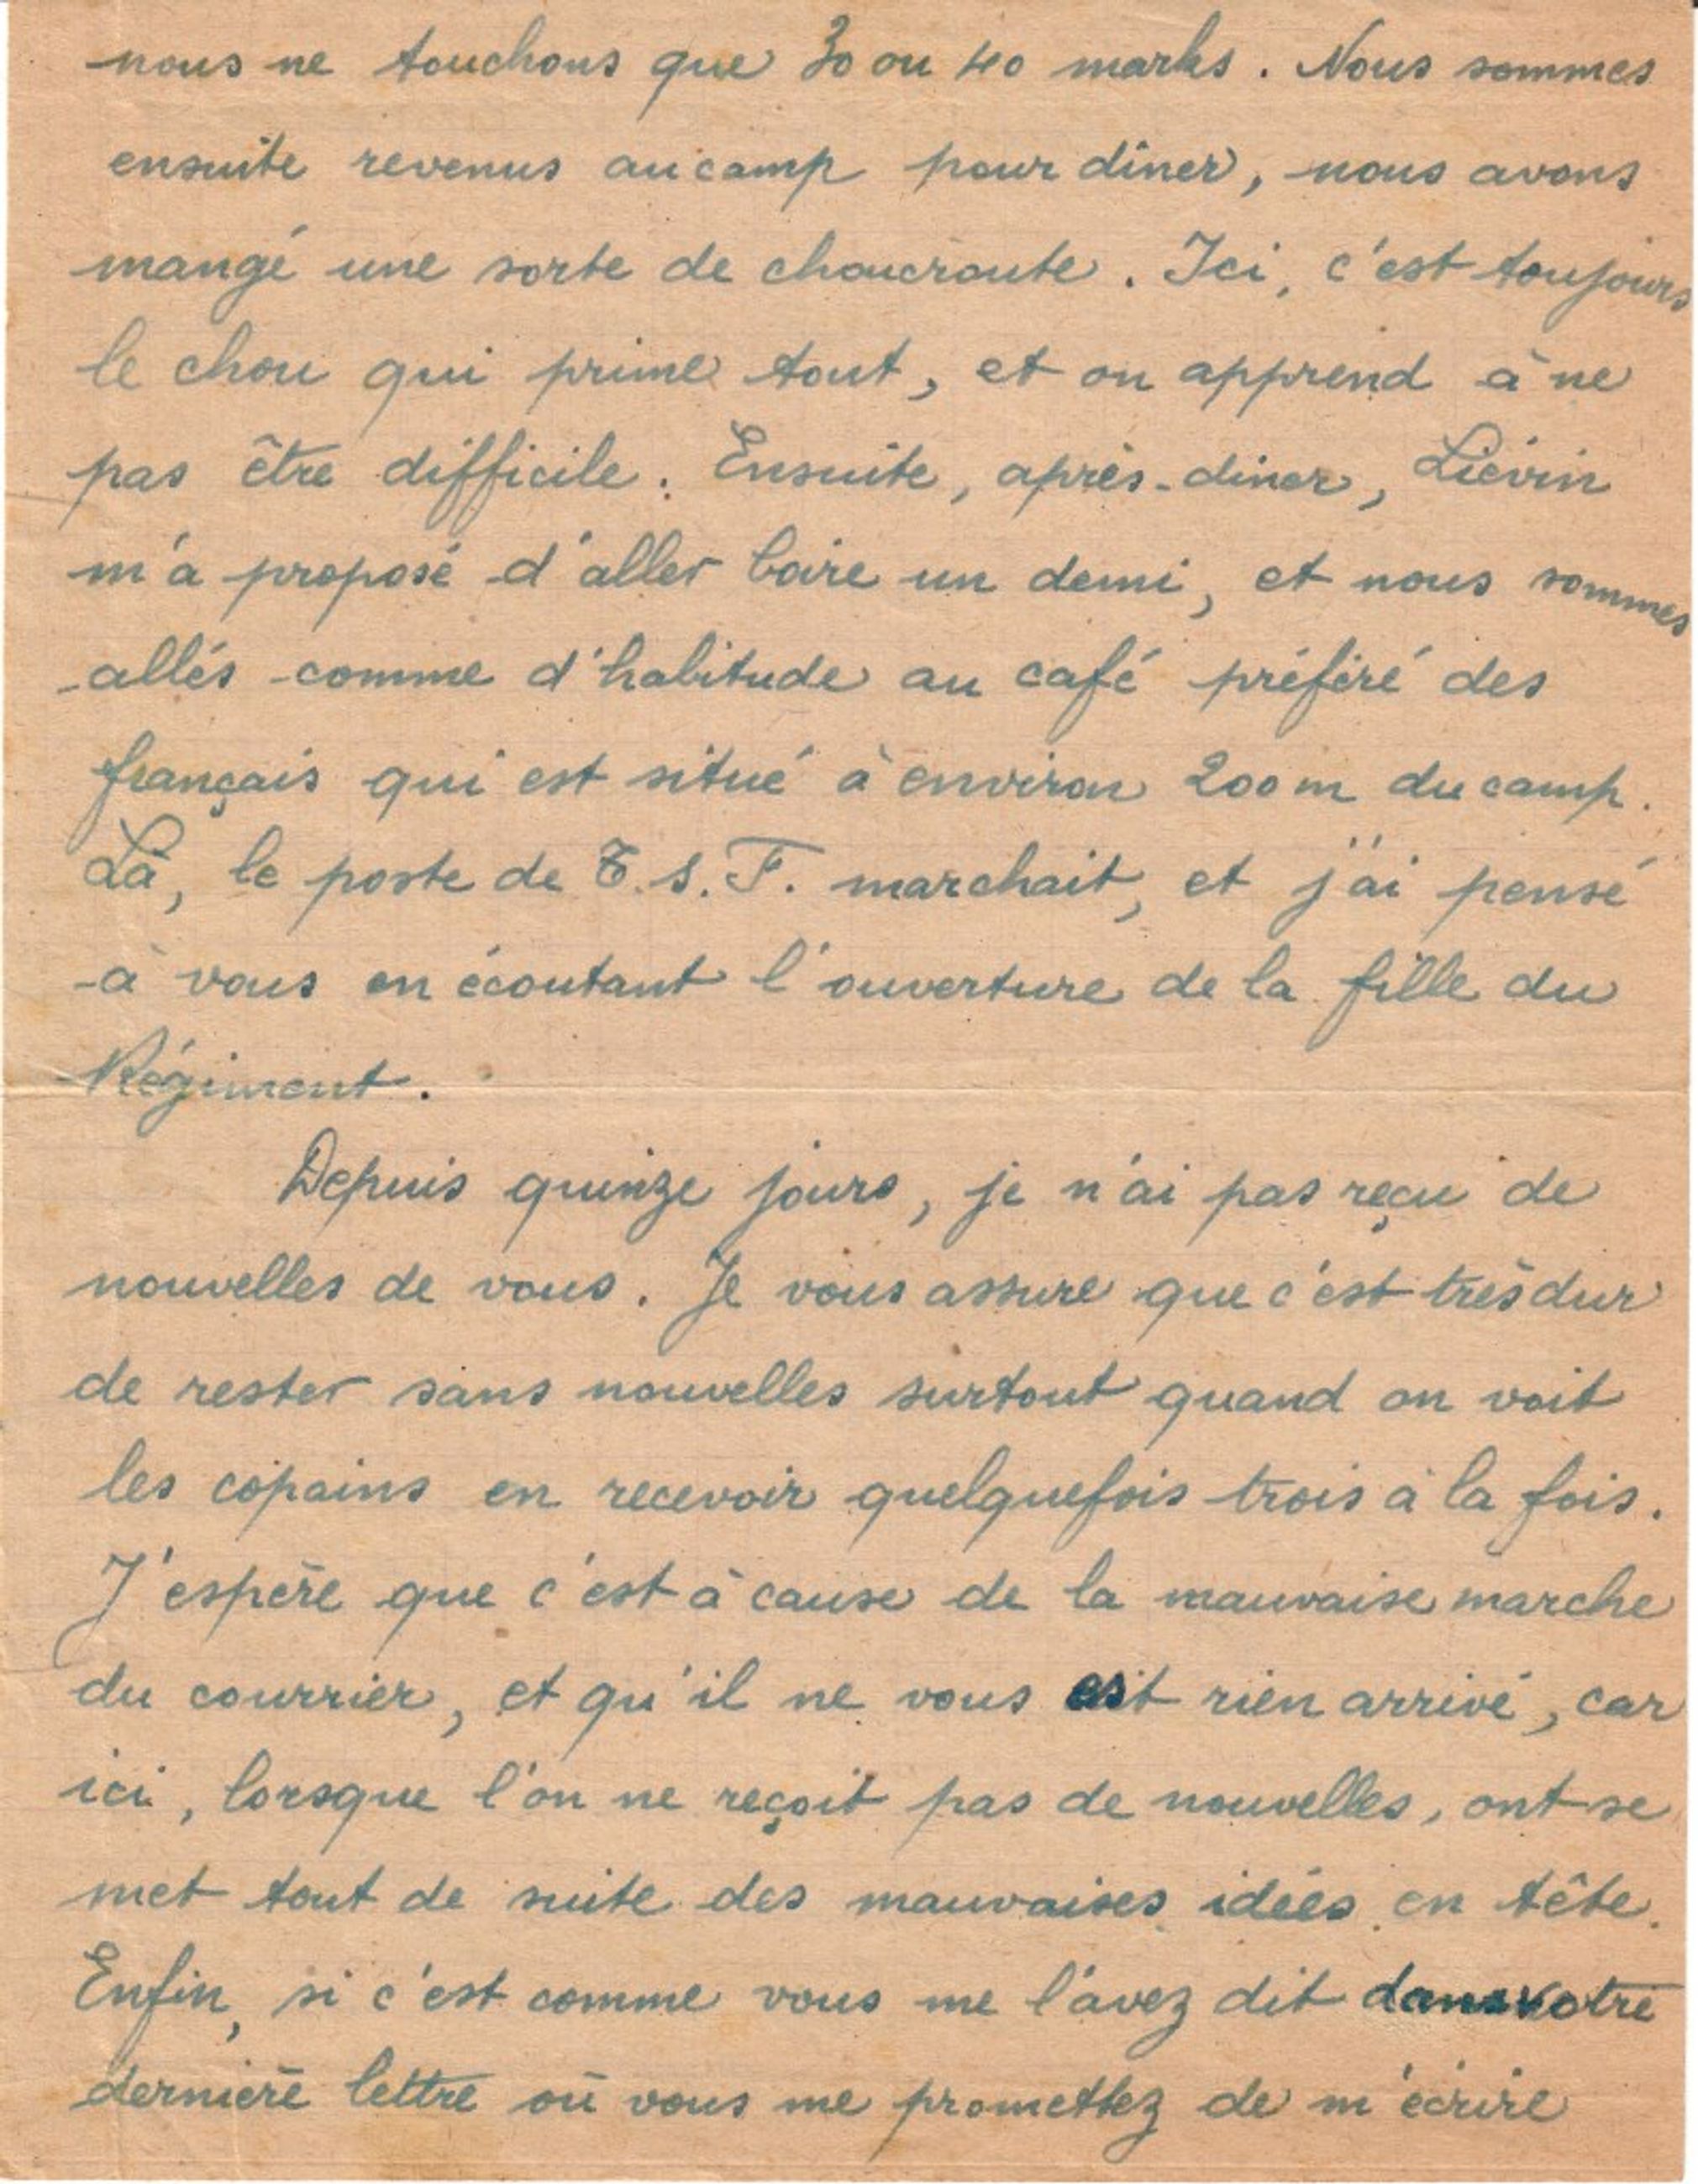 nous ne touchons que 30 ou 40 marks. Nous sommes
ensuite revenus au camp pour dîner, nous avons
mangé une sorte de choucroute. Ici, c'est toujours
le chou qui prime tout, et on apprend à ne
pas être difficile. Ensuite, après-diner, Liévin
m'a proposé d'aller boire un demi, et nous sommes
allés comme d'habitude au café préféré des
français qui est situé à environ 200 m du camp.
Là, le poste de T.S.F. marchait, et j'ai pensé
à vous en écoutant l'ouverture de la fille du
Régiment.
Depuis quinze jours, je n'ai pas reçu de
nouvelles de vous. Je vous assure que c'est très dur
de rester sans nouvelles surtout quand on voit
les copains en recevoir quelquefois trois à la fois.
J'espère que c'est à cause de la mauvaise marche
du courrier, et qu'il ne vous est rien arrivé, car
ici, lorsque l'on ne reçoit pas de nouvelles, ont se
met tout de suite des mauvaises idées en tête.
Enfin, si c'est comme vous me l'avez dit dans votre
dernière lettre où vous me promettez de m'écrire